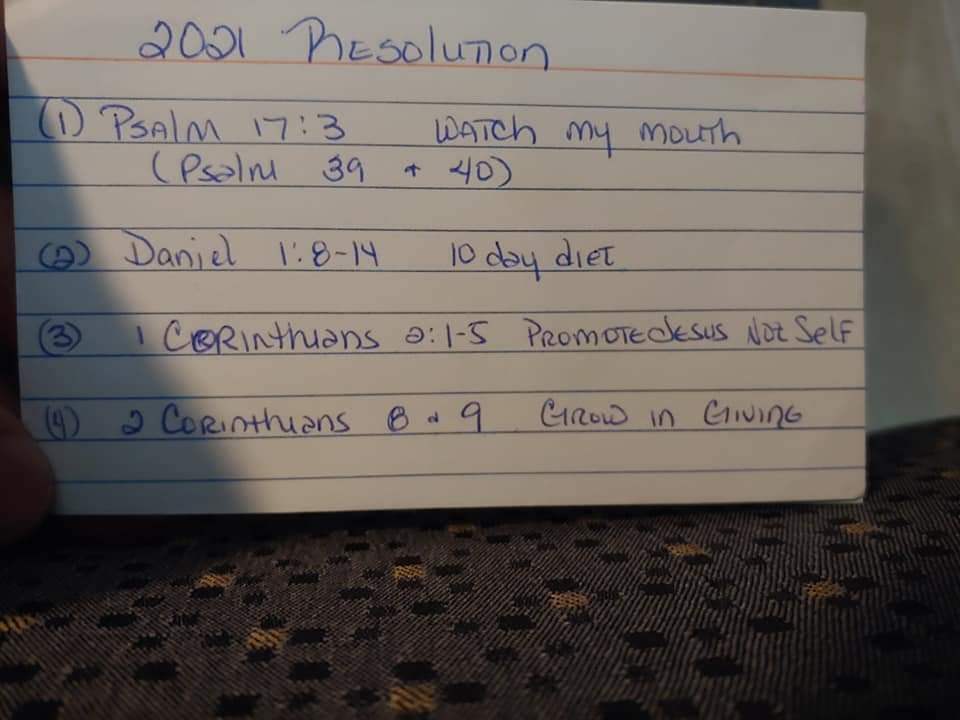 2021 Resolution
(1) Psalm 17:3 Watch my mouth
(Psalm 39 + 40)
(2) Daniel 1:8-14 10 day diet
(3) 1 Corinthians 2:1-5 Promote Jesus Not Self
(4) 2 Corinthians 8 & 9 Grow in Giving